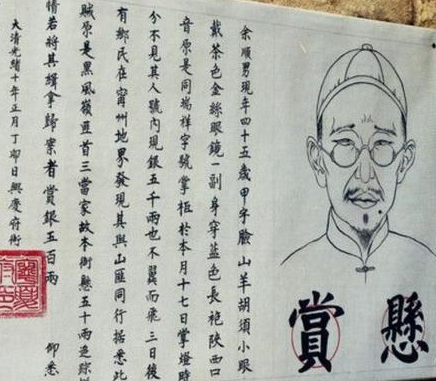 懸賞
余順男現年四十五歲甲字臉山羊胡須小眼
戴茶色金絲眼鏡一副身穿藍色長袍陝西口
音原是同瑞祥字號掌柜於本月十七日掌燈時
分不見其人號內現銀五千兩也不翼而飛三日後
有鄉民在甯州地界發現其與山匪同行據悉此
賊原是黑風嶺匪首三當家故本衙懸五十兩追踪
情若將其緝拿歸案者賞銀五百兩 仰悉
大清光緒十年正月丁卯日興慶府衙